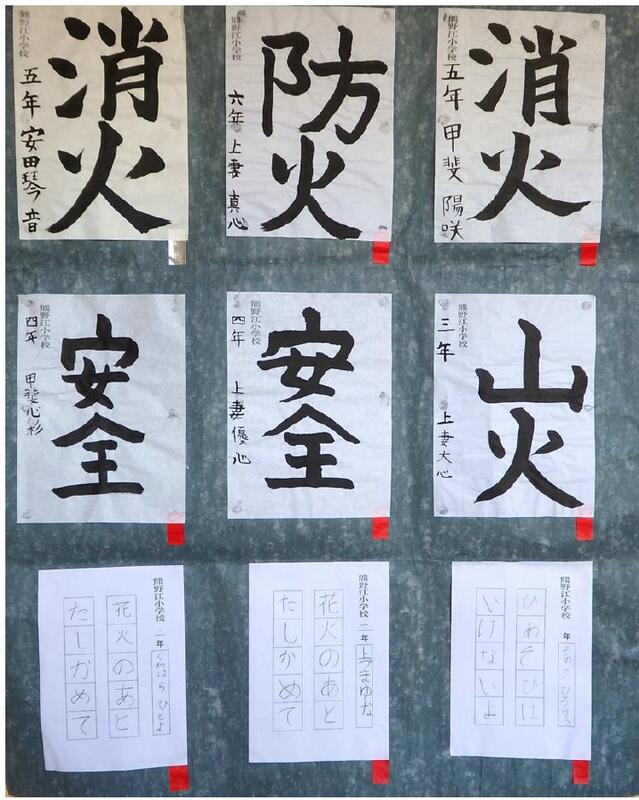 消火
熊野江小学校
五年 安田琴音
防火
熊野江小学校
六年 上妻 真心
消火
熊野江小学校
五年 甲斐 陽咲
安全
熊野江小学校
四年 甲斐心彩
安全
熊野江小学校
四年 上妻優心
山火
熊野江小学校
三年 上妻大心
熊野江小学校 二年 くわはら ひとよ
花火のあと
たしかめて
熊野江小学校 二年 上づまゆな
花火のあと
たしかめて
熊野江小学校 年
ひあそびは
いけないよ